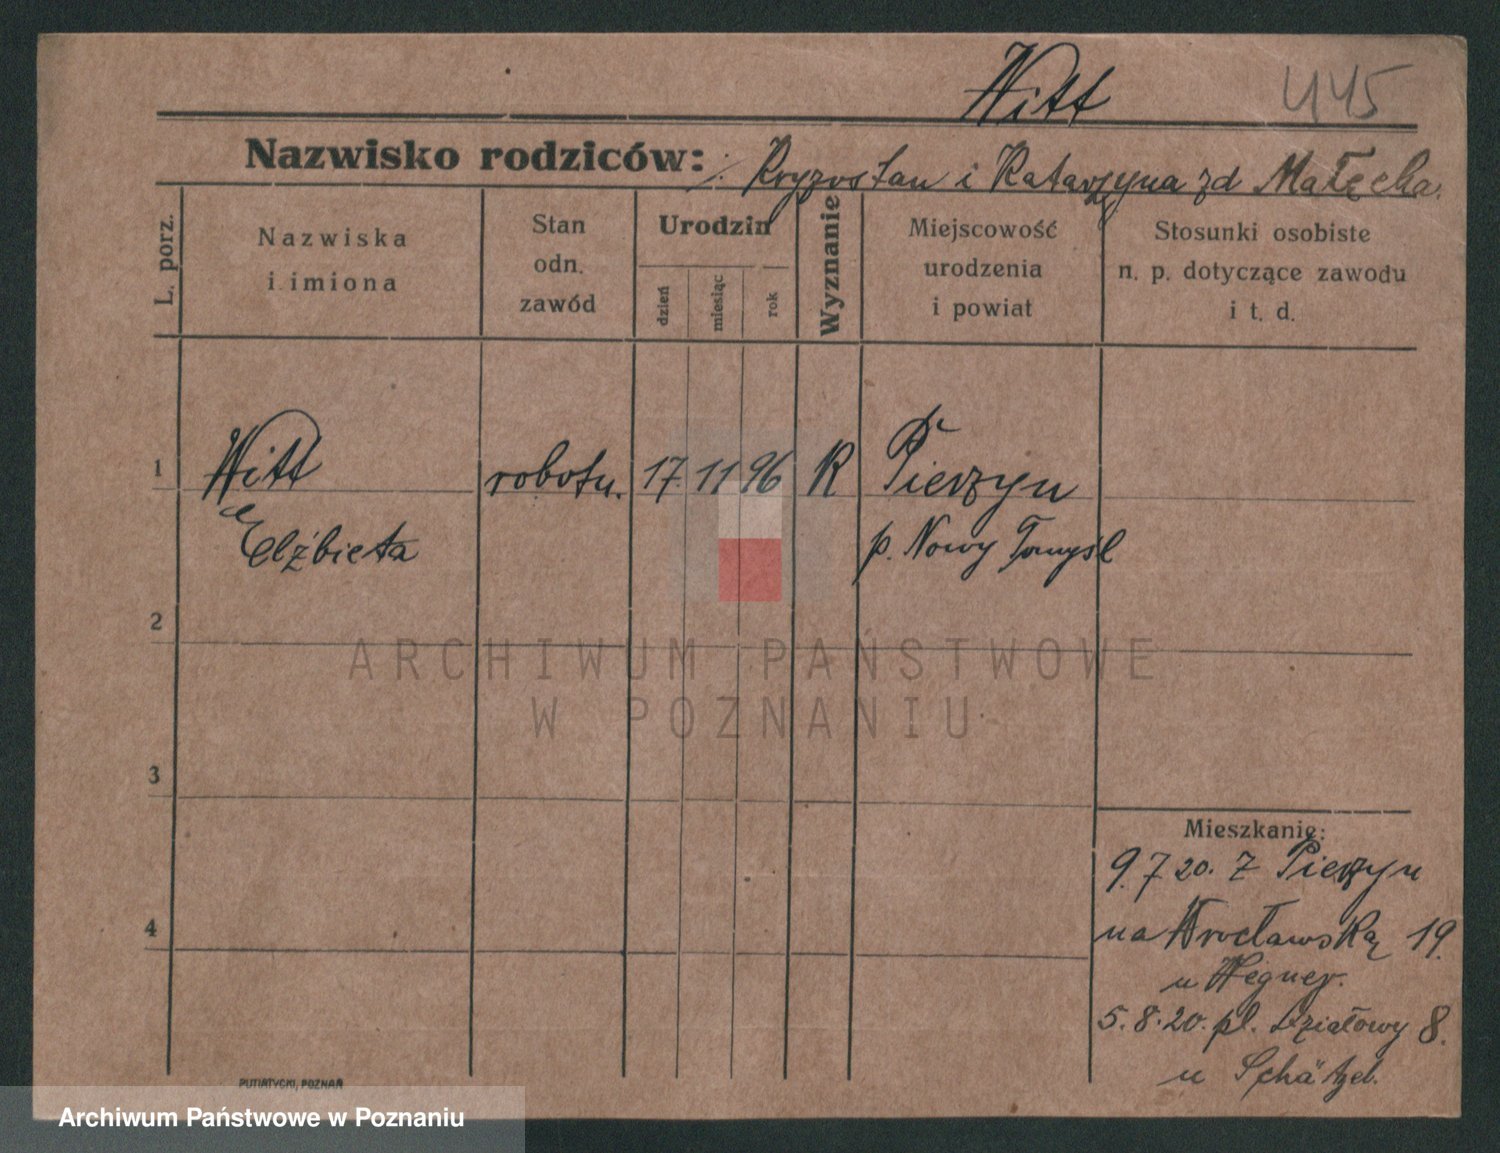 Witt 445
Nazwisko rodziców: Kryzostan i Katarzyna zd Małecha.
L. porz.
Nazwiska
i imiona
Stan
odn.
zawód
Urodzin
dzień
miesiąc
rok
Wyznanie
Miejscowość
urodzenia
i powiat
Stosunki osobiste
n. p. dotyczące zawodu
i t. d.
1 Witt robotn. 17. 11 96 R Pierzyn
Elżbieta p. Nowy Tomyśl
2
ARCHIWUM PAŃSTWOWE
W POZNANIU
3
Mieszkanie:
9.7 20. z Pierzyn
4 na Wrocławską 19.
u Wegner.
5.8.20. pl. Działowy 8.
u Schätzel.
PUTIATYCKI, POZNAŃ
Archiwum Państwowe w Poznaniu